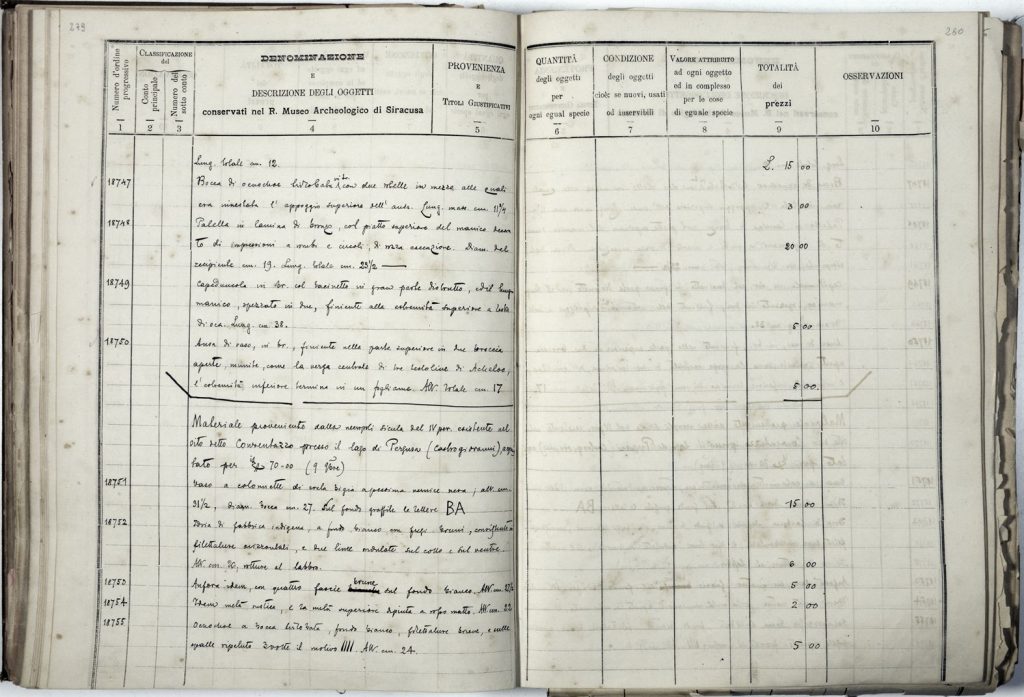 279
280
CLASSIFICAZIONE
del
Numero d'ordine
progressivo
Conto
principale
Numero del
sotto conto
DENOMINAZIONE
E
DESCRIZIONE DEGLI OGGETTI
conservati nel R. Museo Archeologico di Siracusa
PROVENIENZA
E
TITOLI GIUSTIFICATIVI
QUANTITÀ
degli oggetti
per
ogni egual specie
CONDIZIONE
degli oggetti
cioè: se nuovi, usati
od inservibili
VALORE ATTRIBUITO
ad ogni oggetto
ed in complesso
per le cose
di eguale specie
TOTALITÀ
dei
prezzi
OSSERVAZIONI
1 2 3 4 5 6 7 8 9 10
Lung. totale cm. 12. L. 15 00
18747 Bocca di oenochoe trilobata con due rotelle in mezzo alle quali
era innestato l'appoggio superiore dell'ansa. Lung. mass. cm. 11 3 00
18748 Patella in lamina di bronzo, col piatto superiore del manico decora-
to di impressioni a rombi e circoli, di rozza esecuzione. Diam. del 20 00
recipiente cm. 19. Lung. totale cm. 23 1/2
18749 Capeduncola in br. col bacinetto in gran parte distrutto, ed il lungo
manico, spezzato in due, finiente alla estremità superiore a testa
di oca. Lung. cm. 38. 5 00
18750 Ansa di vaso, in br., finiente nella parte superiore in due braccia
aperte, munite, come la verga centrale di tre testoline di Acheloo,
l'estremità inferiore termina in un fogliame. Alt. totale cm. 17 5 00
Materiale proveniente dalla necropoli sicula del IV per. esistente nel
sito detto Conventazzo presso il lago di Pergusa (Castrogiovanni), acqui-
stato per £ 70-00 (9 )
18751 Vaso a colonnette di creta bigia a pessima vernice nera; alt. cm.
31 1/2, diam. bocca cm. 27. Sul fondo graffite le lettere BA 15 00
18752 Idria di fabbrica indigena, a fondo bianco con fregi bruni, consistenti in
filettature orizzontali, e due linee ondulate sul collo e sul ventre.
Alt. cm. 30, rotture al labbro. 6 00
18753 Anfora idem, con quattro fascie brune sul fondo bianco. Alt. cm. 5 00
18754 Idem metà rustica, e la metà superiore dipinta a rosso matto. Alt. cm. 22 2 00
18755 Oenochoe a bocca trilobata, fondo bianco, filettature brune, e sulle
spalle ripetuto volte il motivo IIII. Alt. cm. 24. 5 00